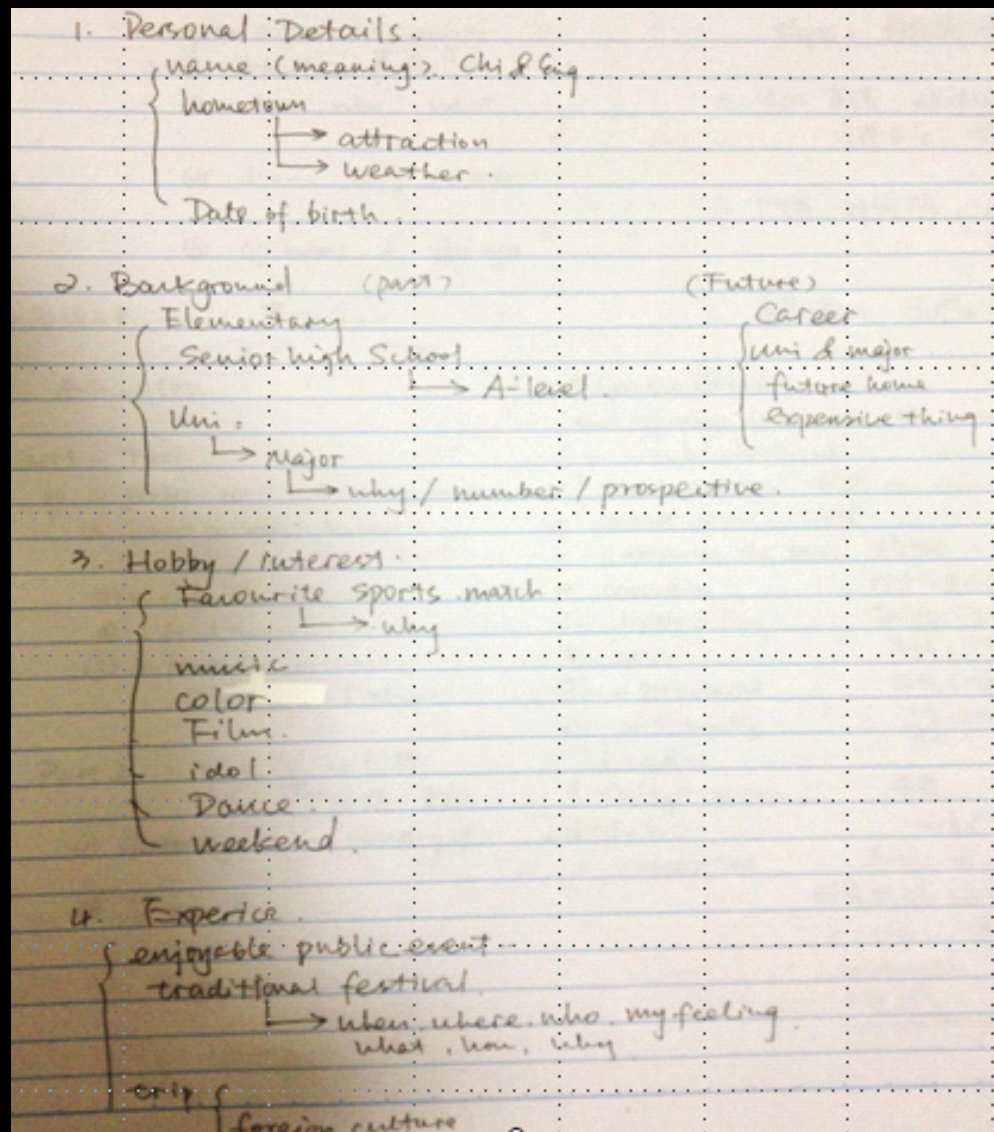 1. Personal Details.
name (meaning). Chi & Eng.
hometown
→ attraction
→ weather.
Date of birth.
2. Background (past) (Future)
Elementary Career
Senior high School uni & major
→ A-level. future home
Uni: expensive thing
→ Major
→ why / number / prospective.
3. Hobby / interest.
Favourite sports match
→ why
music
color
Film.
idol.
Dance.
weekend.
4. Experice.
enjoyable public event
traditional festival.
→ when, where, who, my feeling
what, how, why
trip
foreign culture